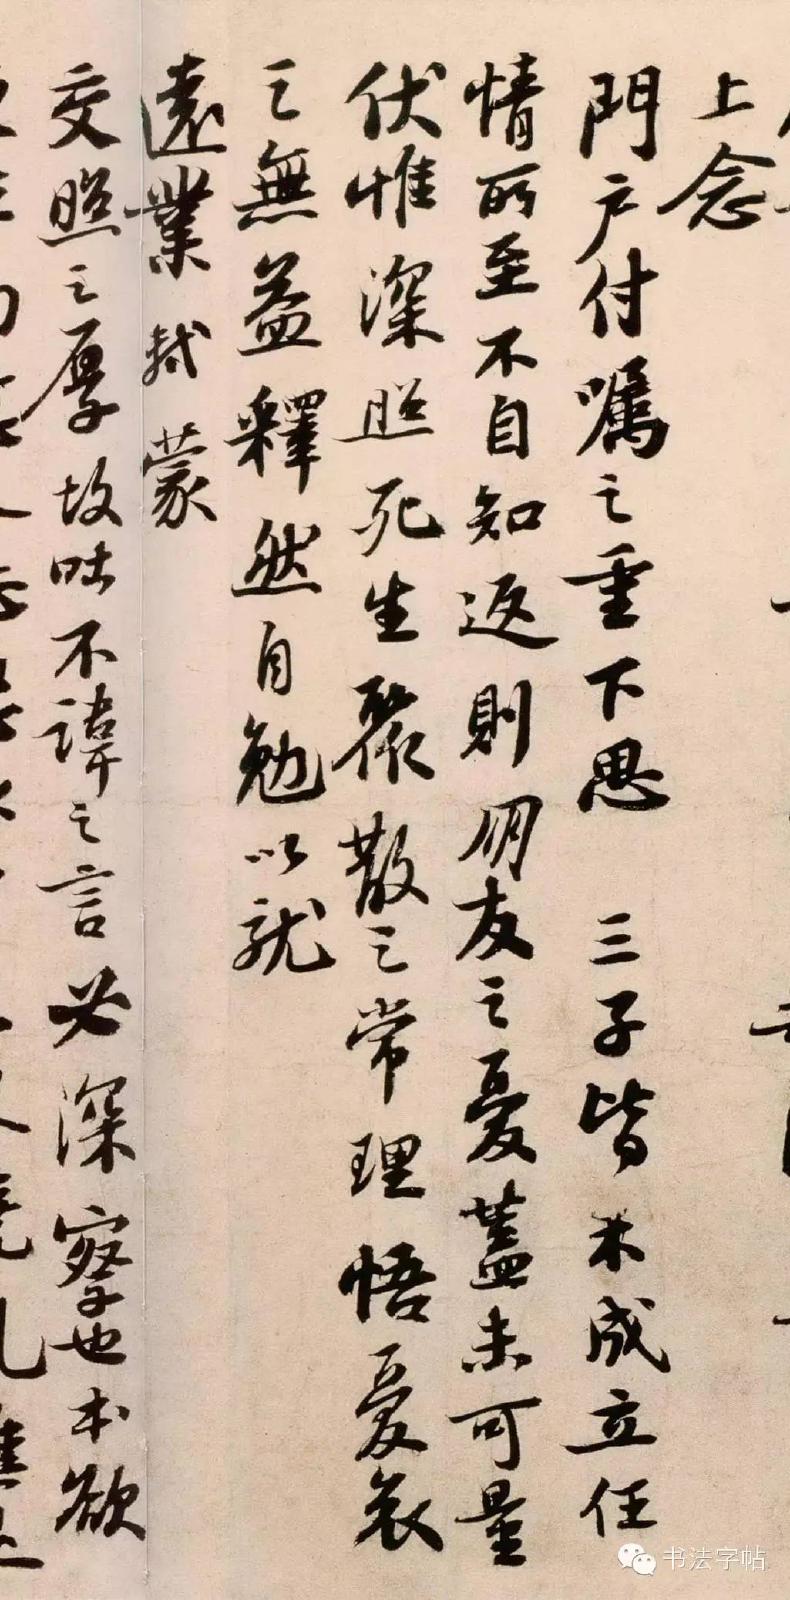 上念
門户付嘱之重下思 三子皆未成立任
情所至不自知返則朋友之憂蓋未可量
伏惟深照死生聚散之常理悟憂哀
之無益釋然自勉以就
遠業軾蒙
交照之厚故吐不諱之言必深察也本欲
书法字帖